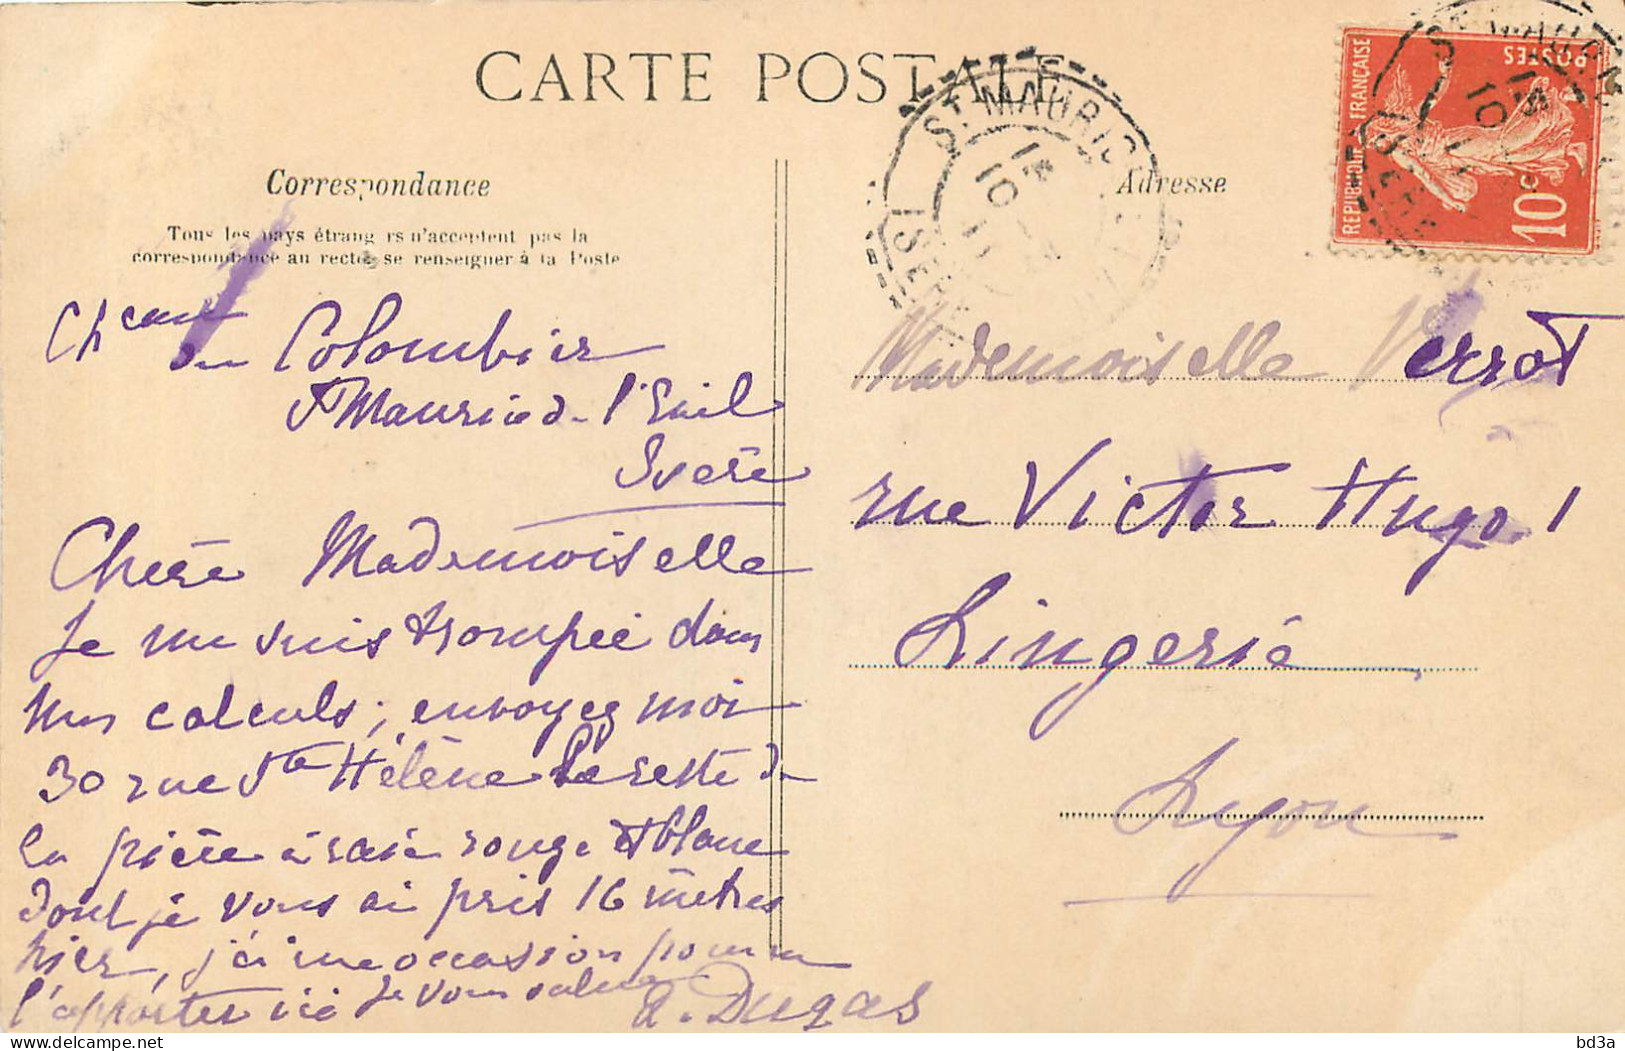 CARTE POSTALE
Correspondance
Tous les pays étrangers n'acceptent pas la
correspondance au recto, se renseigner à la Poste
Ch^eau du Colombier
St Maurice de l'Exil
Isère
Chère Mademoiselle
Je me suis trompée dans
mes calculs; envoyez moi
30 rue Ste Hélène le reste de
la pièce à raie rouge et blanc
dont je vous ai pris 16 mètres
hier, j'ai une occasion pour me
l'apporter ici Je vous salue
A. Dugas
Adresse
Mademoiselle Verrot
rue Victor Hugo. 1
Lingerie
Lyon
ST MAURICE
13
10
11
ISERE
REPUBLIQUE FRANÇAISE
POSTES
10c
ST MAURICE
13
10
11
ISERE
bd3a